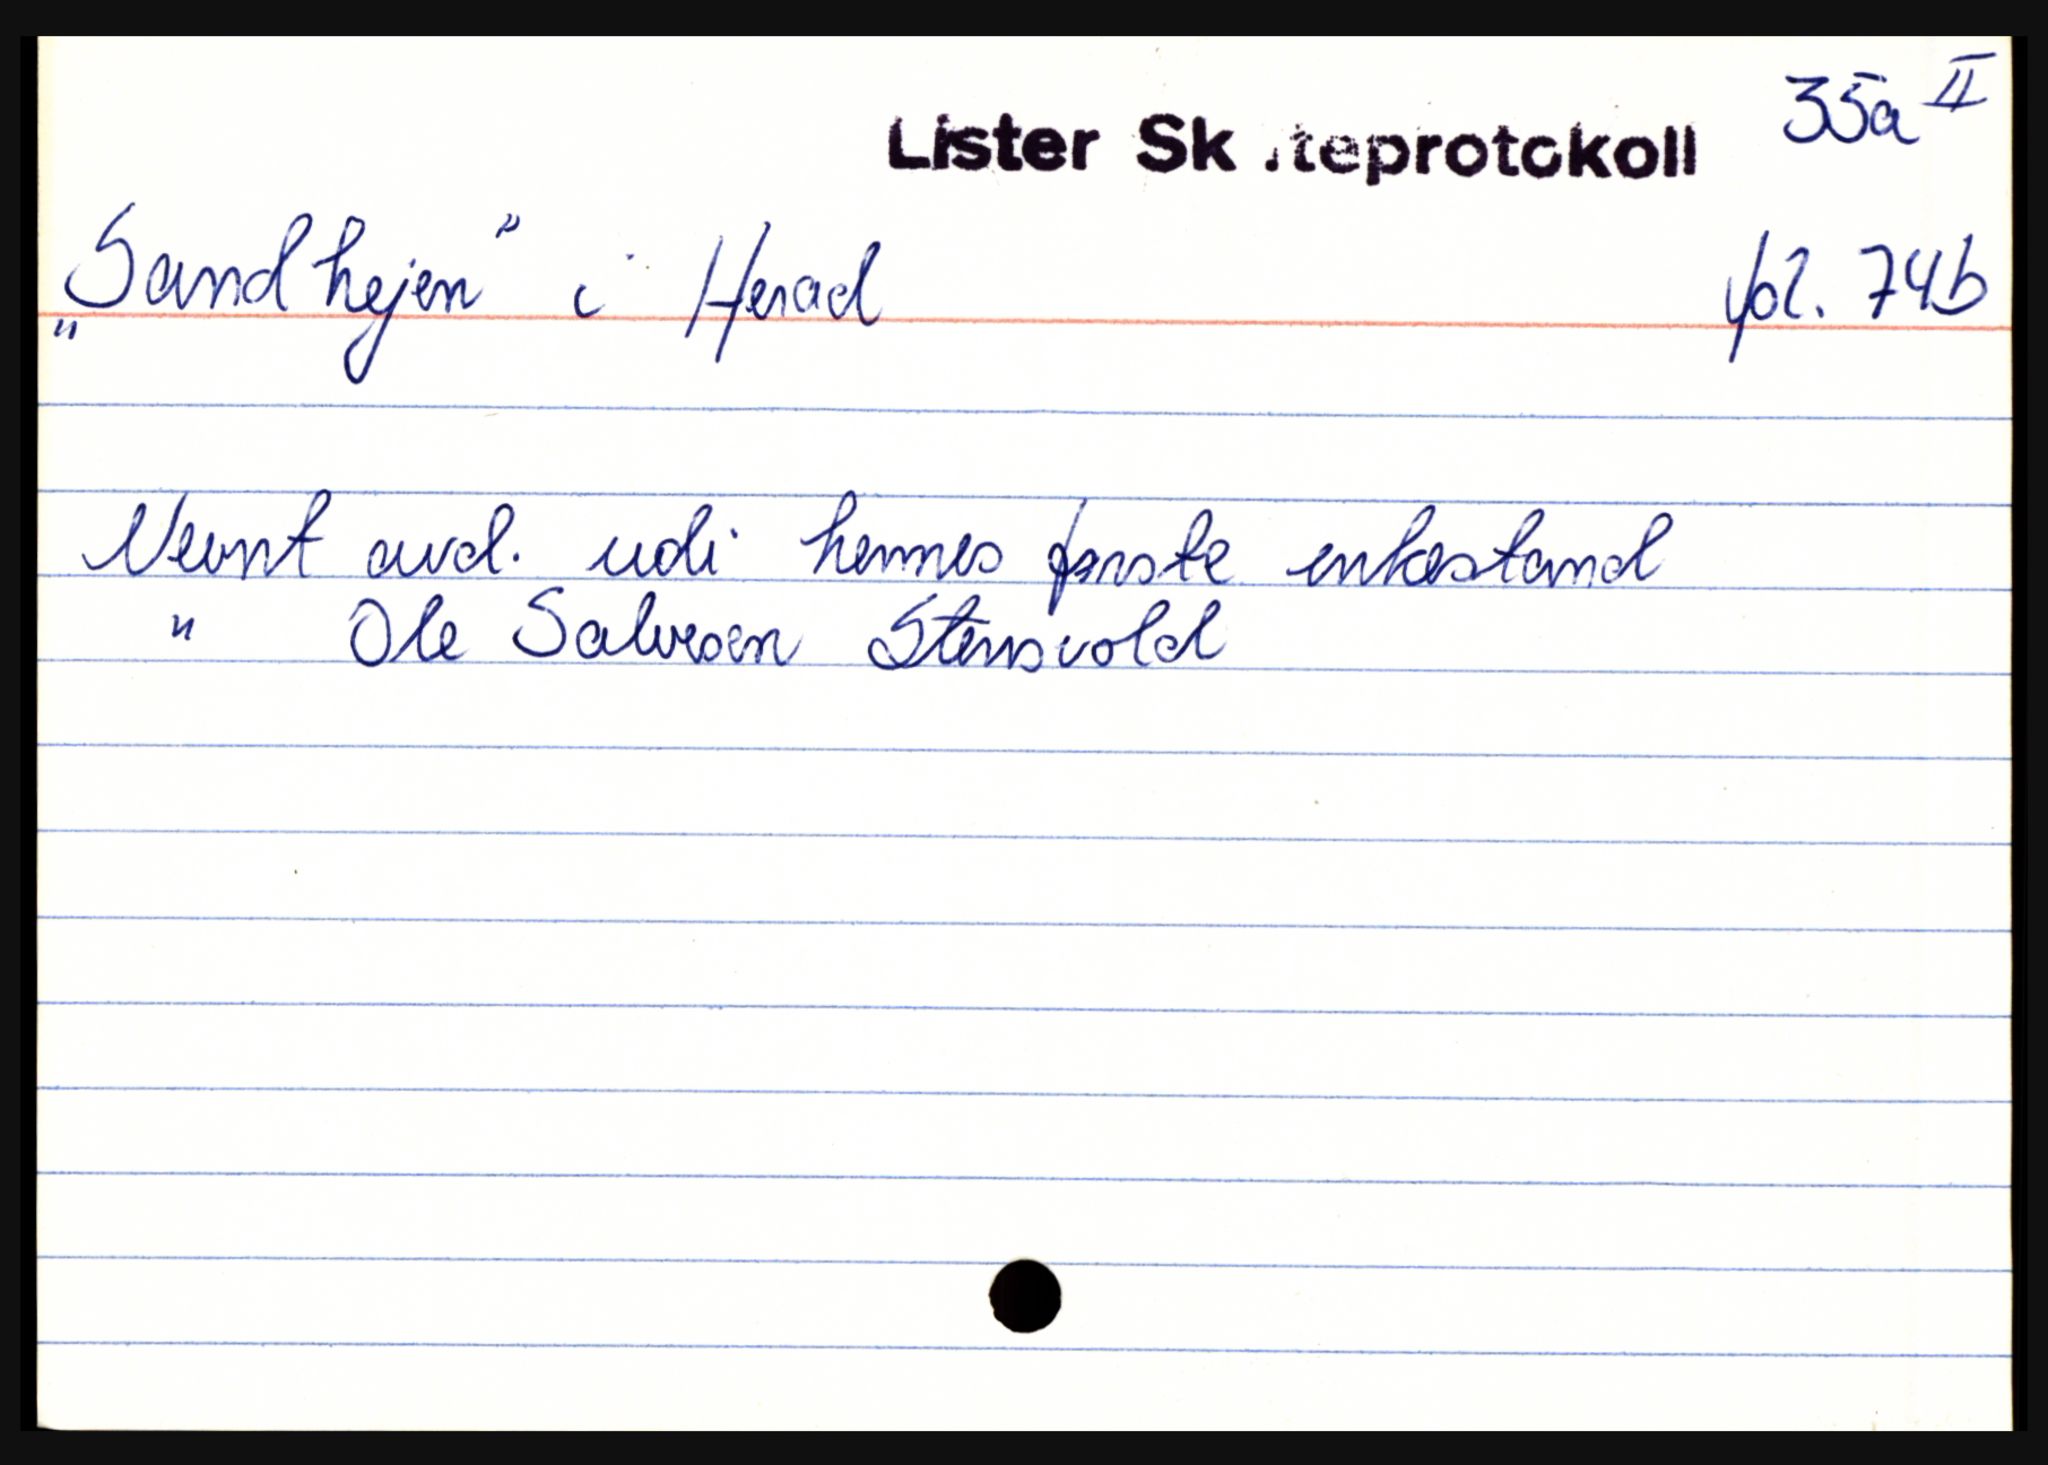 35a II
Lister Sk.teprotokoll
"Sandhejen" i Herad fol. 74b
Nevnt avd. udi hennes første enkestand
" Ole Salvesen Stensvold